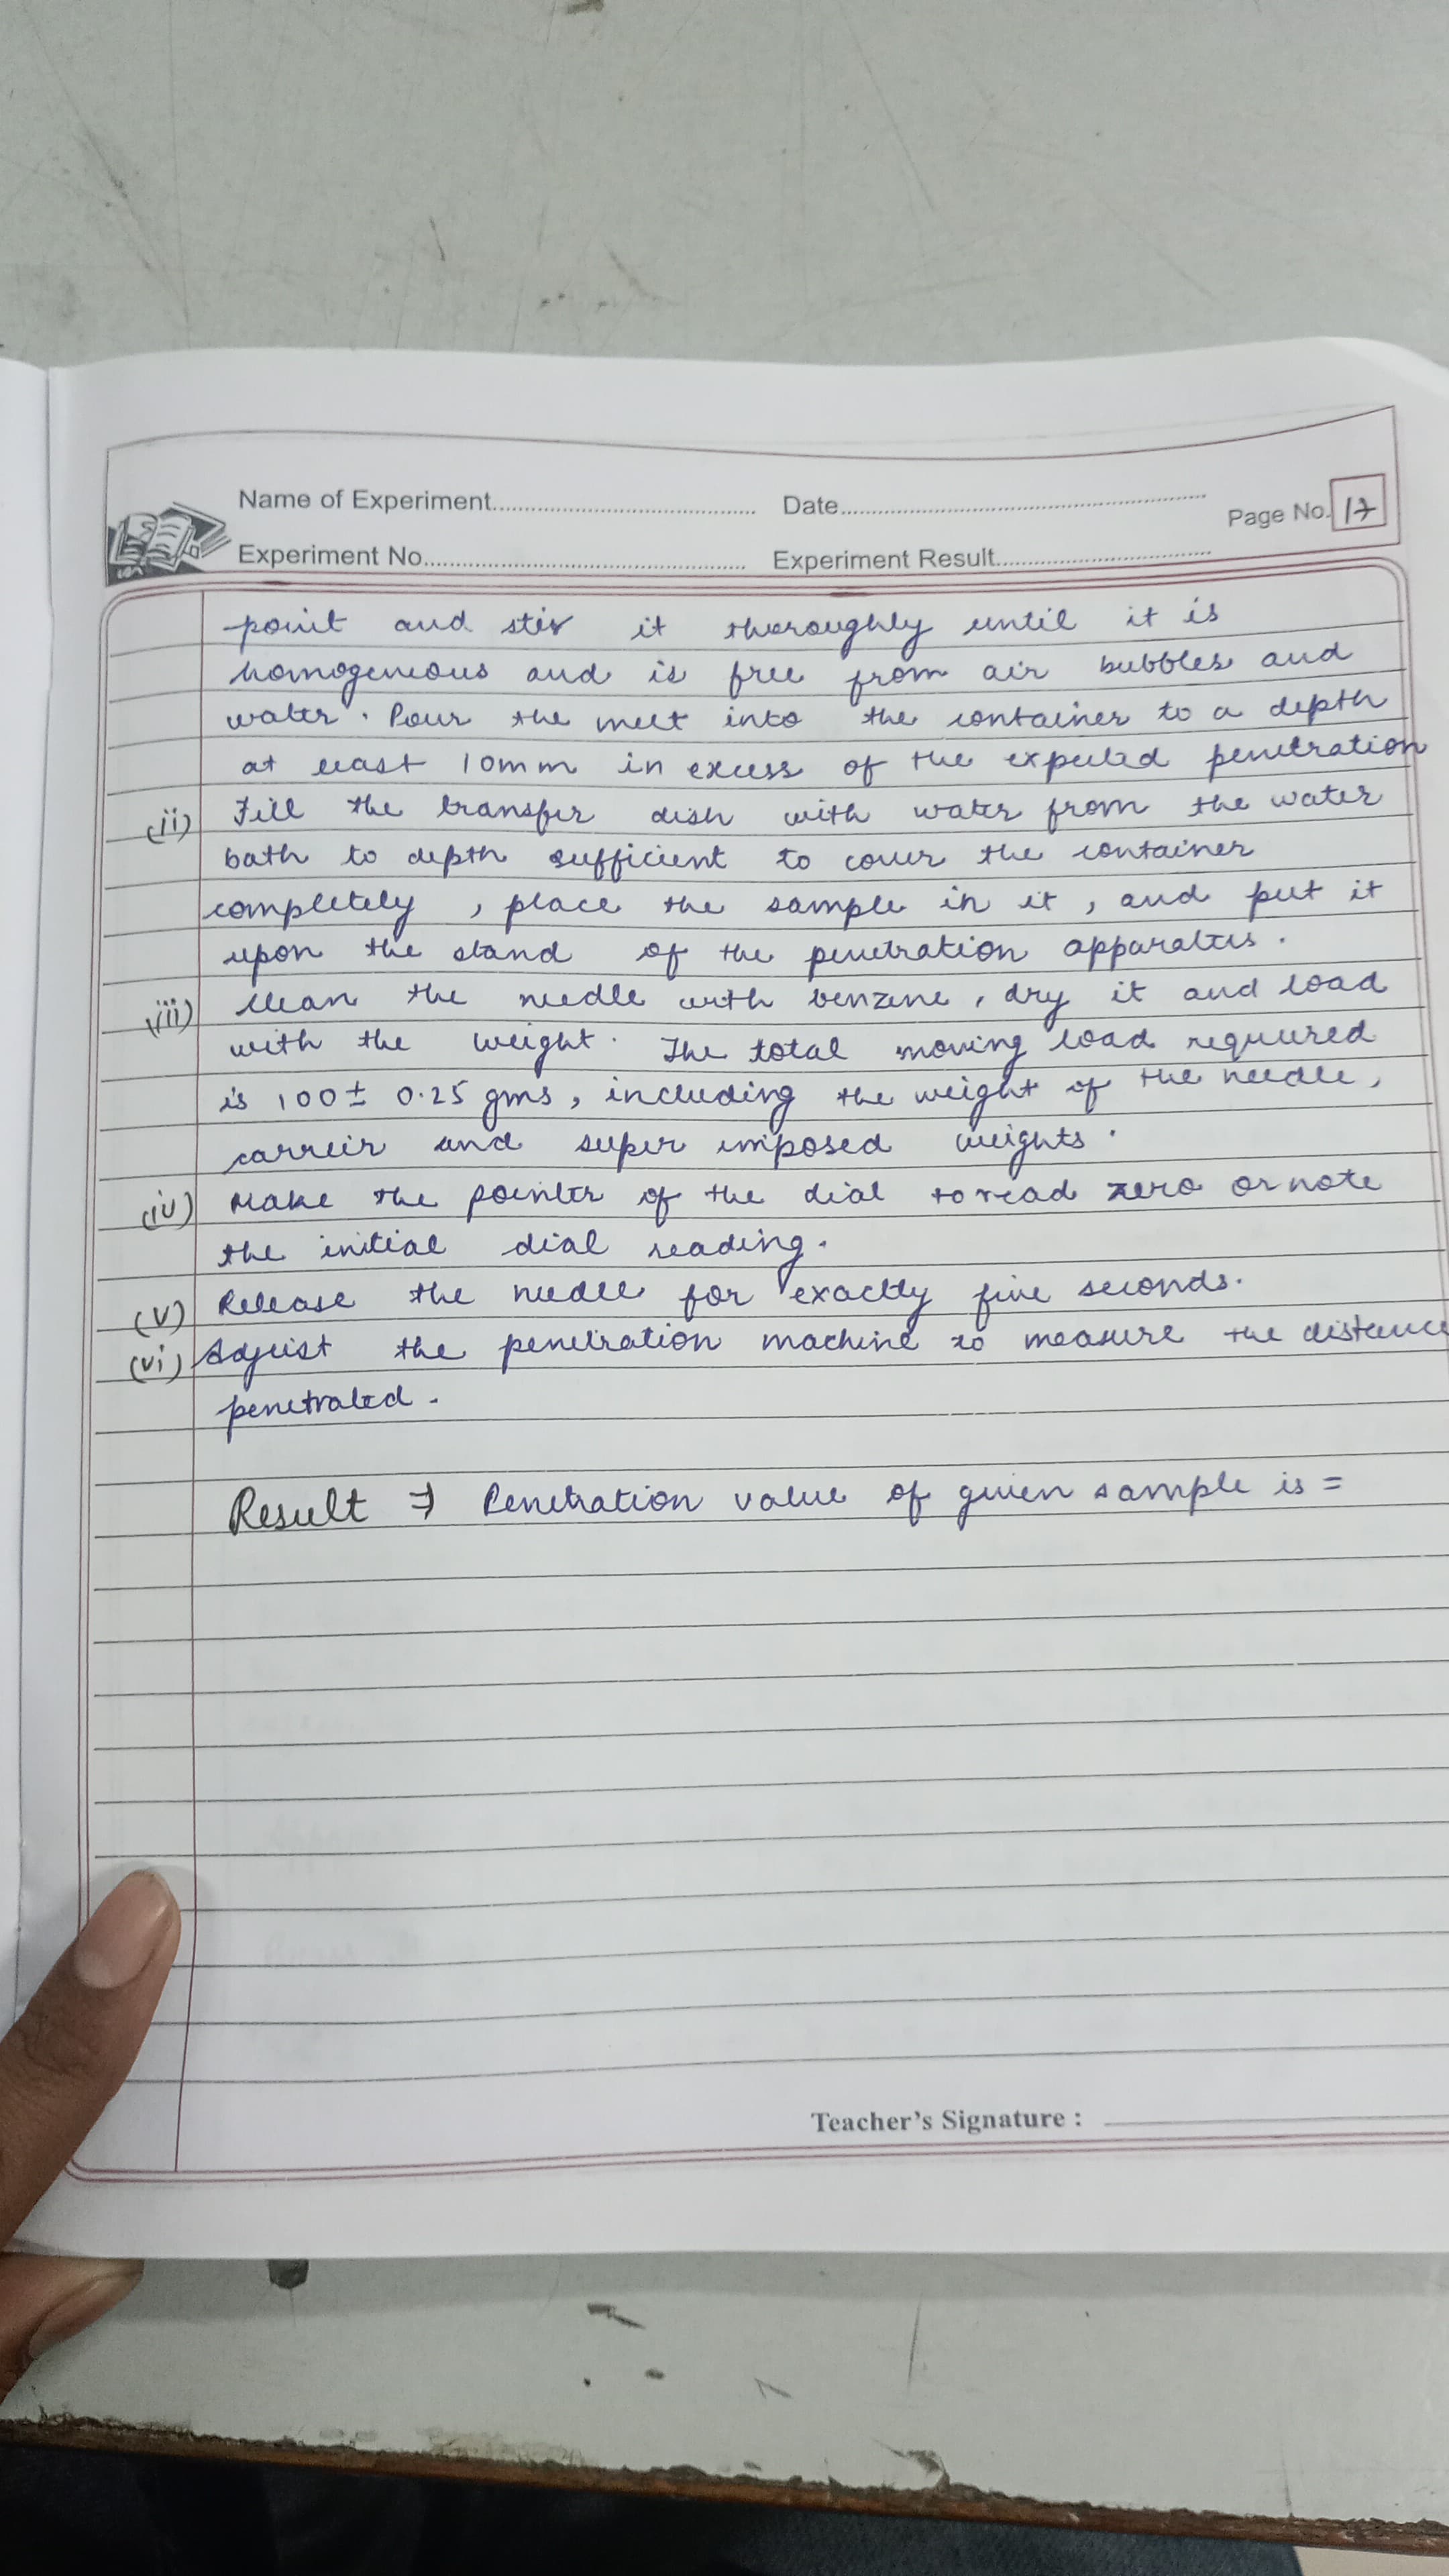 Name of Experiment.................... Date....................
Page No. 17
Experiment No.................... Experiment Result....................
point and stir it thoroughly until it is
homogeneous and is free from air bubbles and
water. Pour the melt into the container to a depth
at least 10mm in excess of the expected penetration
(ii) Fill the transfer dish with water from the water
bath to depth sufficient to cover the container
completely, place the sample in it, and put it
upon the stand of the penetration apparatus.
(iii) Clean the needle with benzene, dry it and load
with the weight. The total moving load required
is 100 ± 0.25 gms, including the weight of the needle,
carreir and super imposed weights.
(iv) Make the pointer of the dial to read zero or note
the initial dial reading.
(v) Release the needle for exactly five seconds.
(vi) Adjust the penetration machine to measure the distance
penetrated.
Result ⇒ Penetration value of given sample is =
Teacher's Signature :